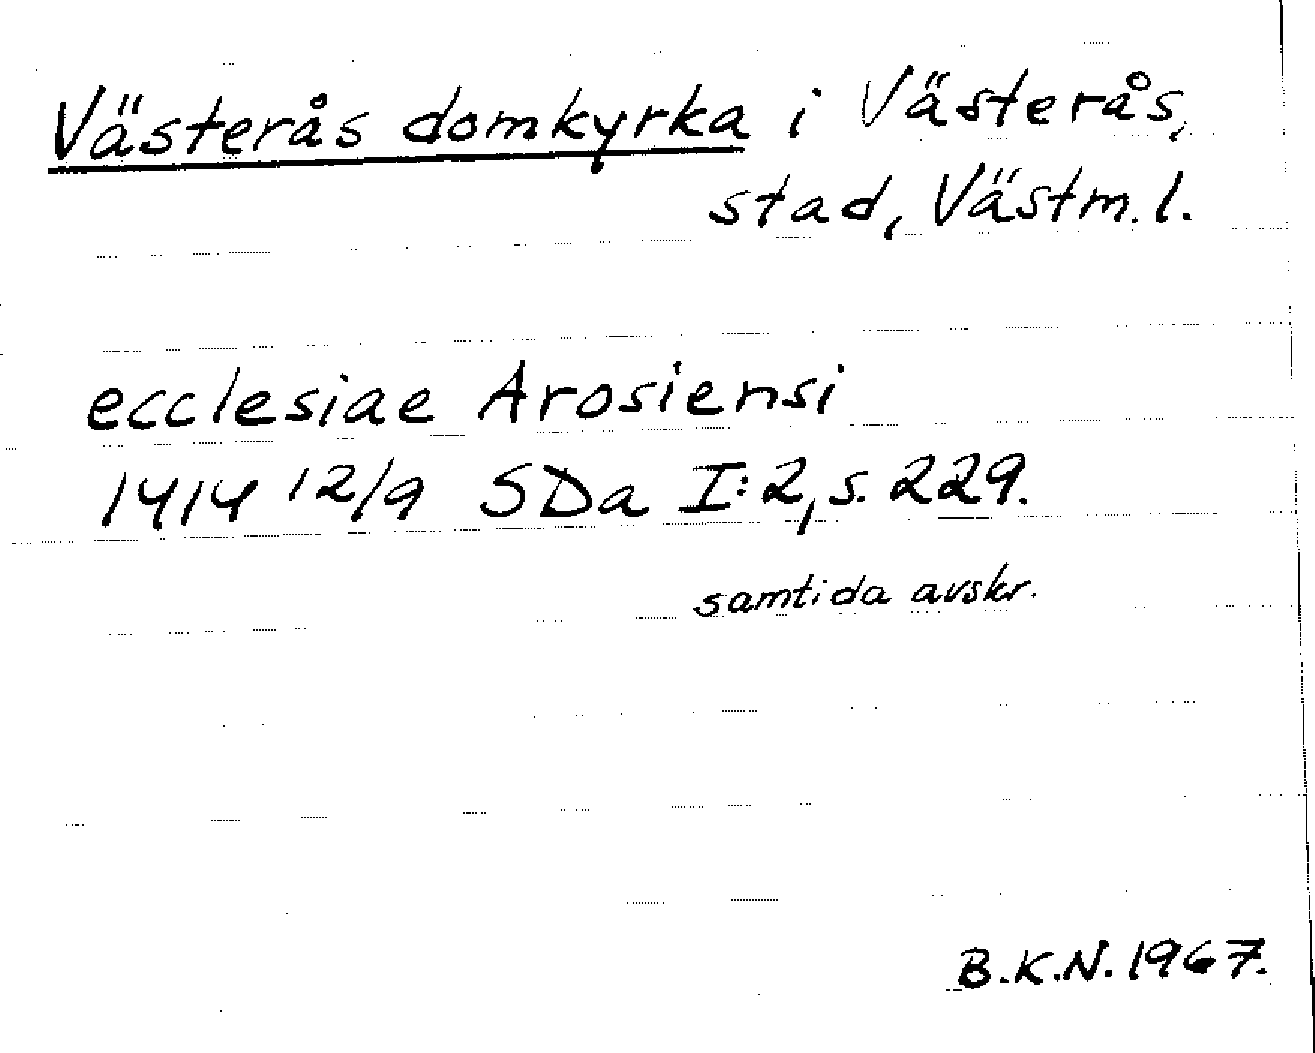 Västerås domkyrka i Västerås,
stad, Västm. l.
ecclesiae Arosiensi
1414 12/9 SDa I:2, s. 229.
samtida avskr.
B.K.N. 1967.